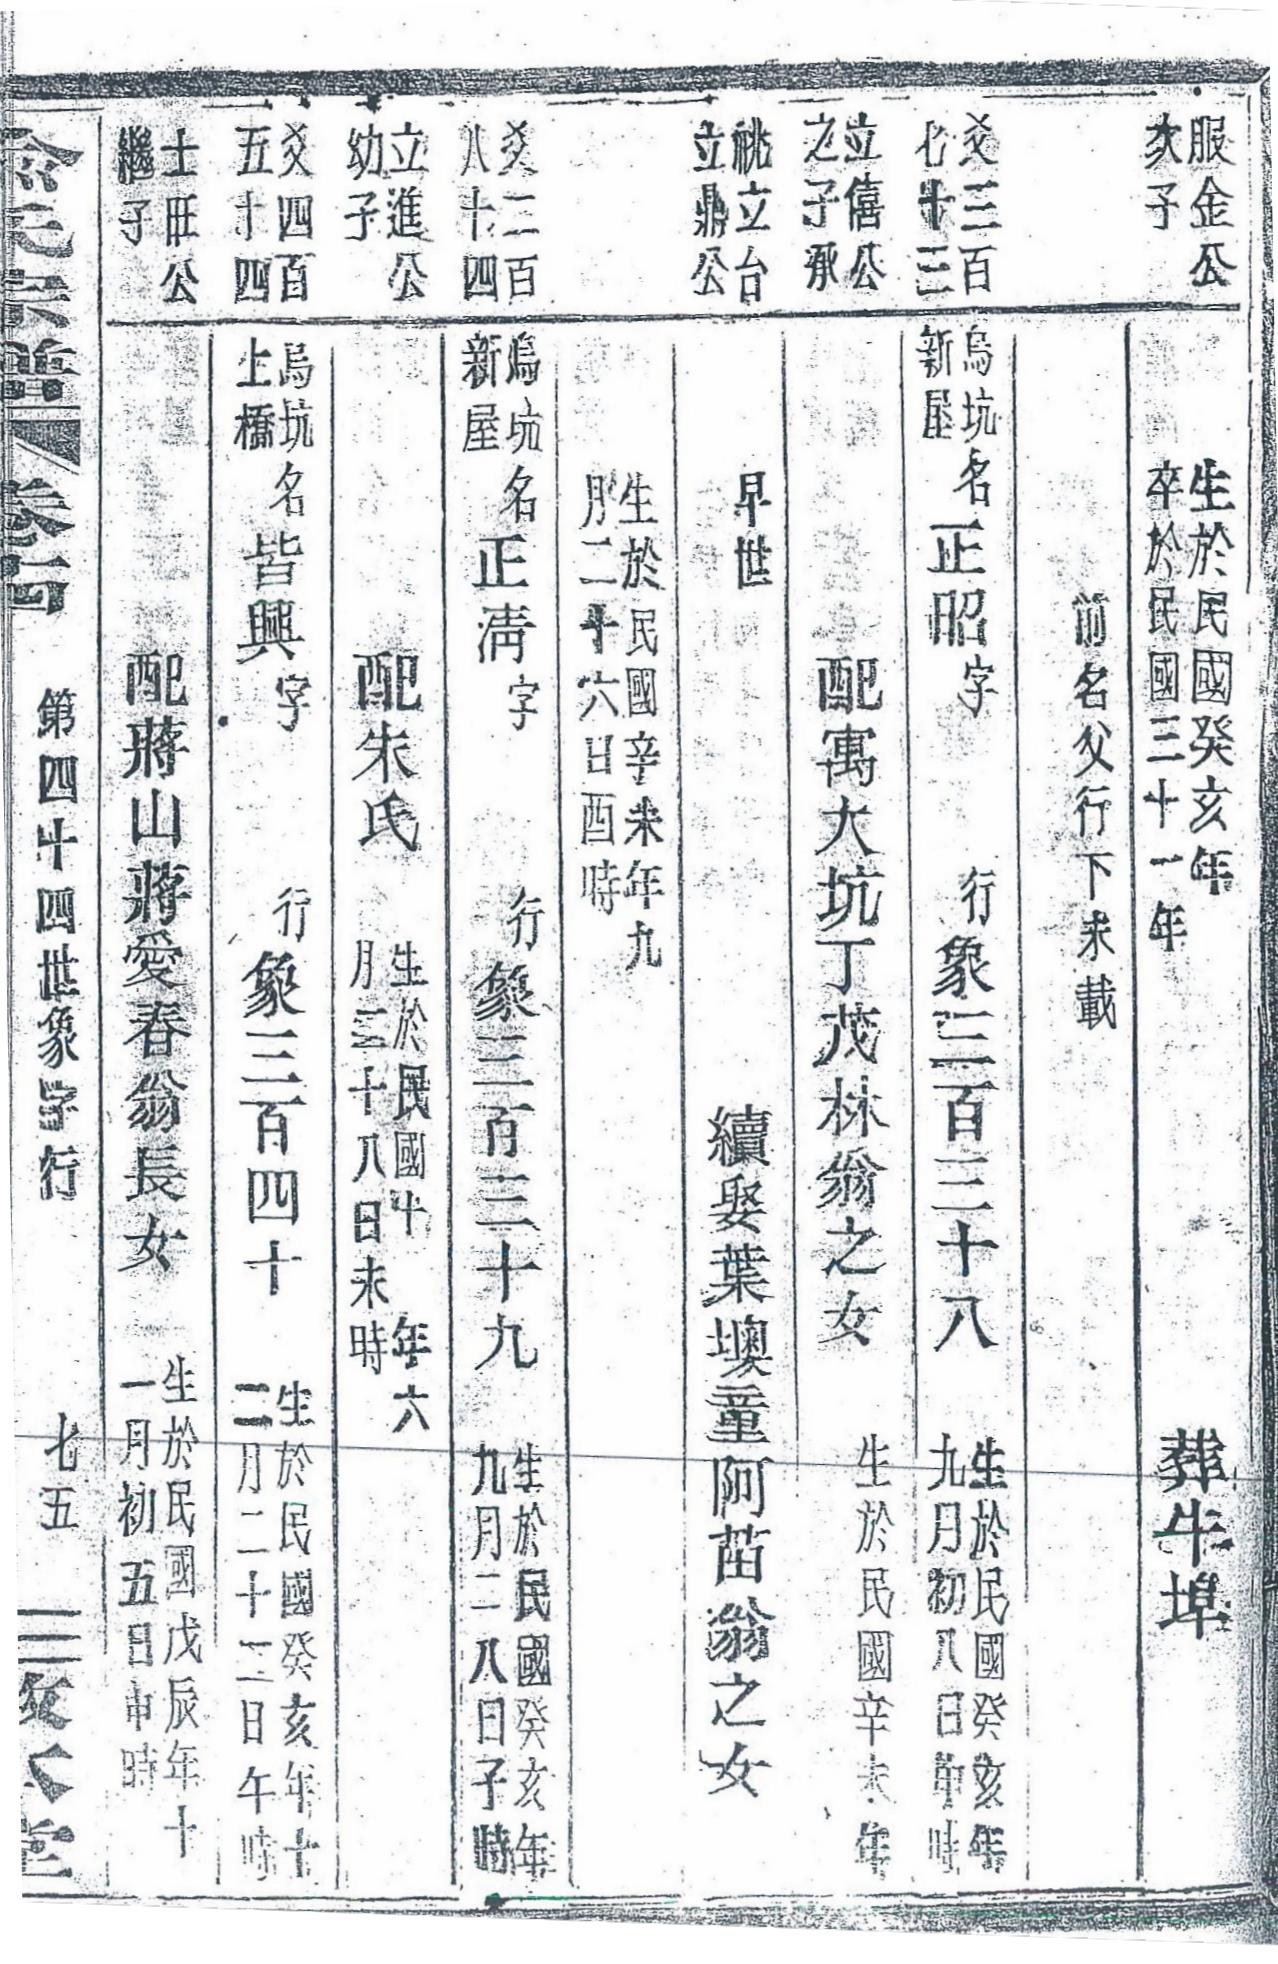 服金公
次子
生於民國癸亥年
卒於民國三十一年
葬牛埠
前名父行下未載
爻三百
七十三
烏坑
新屋
名正昭字
行象三百三十八
生於民國癸亥年
九月初八日申時
立僖公
之子承
配寓大坑丁茂林翁之女
生於民國辛未年
祧立台
立鼎公
早世
續娶葉墺童阿苗翁之女
生於民國辛未年九
月二十六日酉時
爻二百
八十四
烏坑
新屋
名正淸字
行象三百三十九
生於民國癸亥年
九月二八日子時
立進公
幼子
配朱氏
生於民國十 年六
月三十八日未時
爻四百
五十四
烏坑
上橋
名皆興字
行象三百四十
生於民國癸亥年十
二月二十二日午時
士旺公
繼子
配蔣山蔣愛春翁長女
生於民國戊辰年十
一月初五日申時
氏宗譜 卷
第四十四世象字行
七五